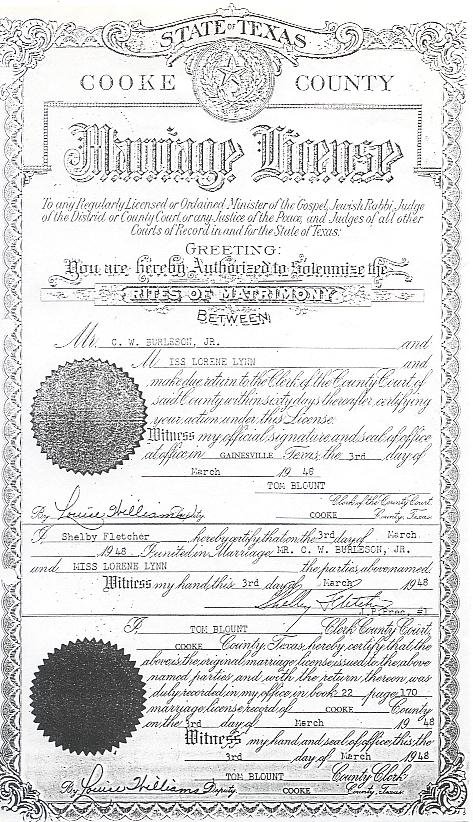 STATE OF TEXAS
COOKE COUNTY
Marriage License
To any Regularly Licensed or Ordained Minister of the Gospel, Jewish Rabbi, Judge
of the District or County Court, or any Justice of the Peace, and Judges of all other
Courts of Record in and for the State of Texas:
GREETING:
You are hereby Authorized to Solemnize the
RITES OF MATRIMONY
BETWEEN
Mr. C. W. BURLESON, JR. and
M ISS LORENE LYNN and
make due return to the Clerk of the County Court of
said County within sixty days thereafter, certifying
your action under this License.
Witness my official signature and seal of office
at office in GAINESVILLE Texas, the 3rd day of
March 19 48
TOM BLOUNT
Clerk of the County Court,
By Louise Williams Deputy COOKE County, Texas
I, Shelby Fletcher hereby certify that on the 3rd day of March
1948 I united in Marriage MR. C. W. BURLESON, JR.
and MISS LORENE LYNN the parties above named.
Witness my hand, this 3rd day of March 1948
Shelby Fletcher
J.P. Prec. #1
I, TOM BLOUNT Clerk County Court,
COOKE County, Texas, hereby certify that the
above is the original marriage license issued to the above
named parties, and with the return thereon, was
duly recorded in my office, in book 22 page 170
marriage license record of COOKE County
on the 3rd day of March 1948
Witness my hand and seal of office, this, the
3rd day of March 1948
TOM BLOUNT County Clerk
By Louise Williams Deputy COOKE County, Texas